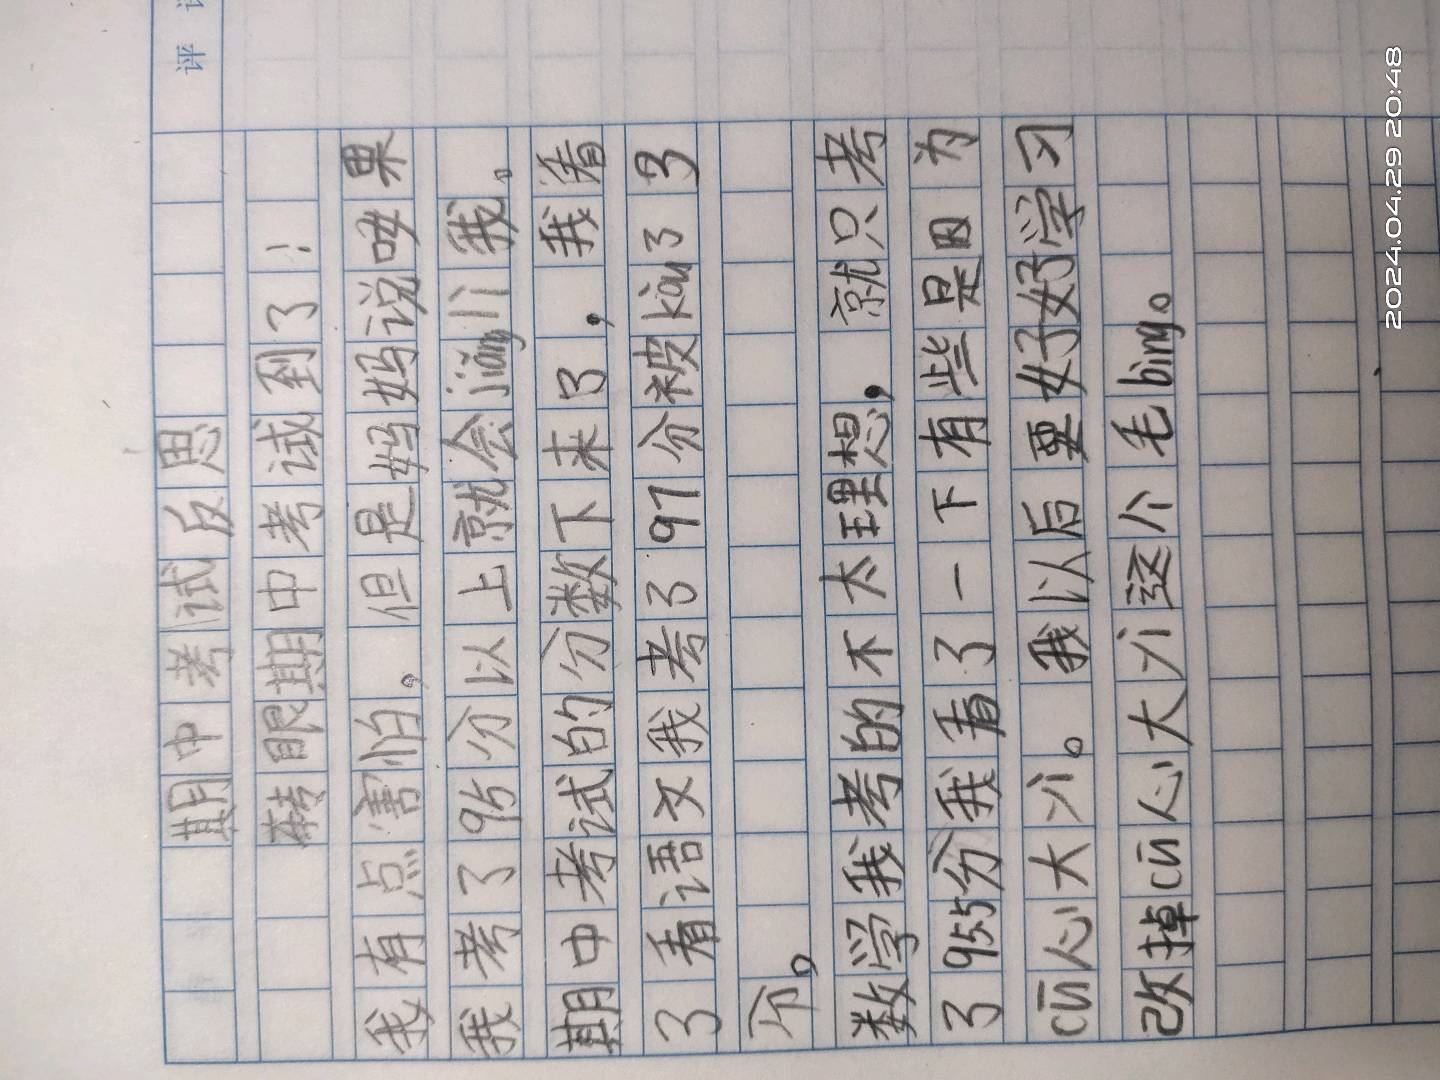 评
期中考试反思
转眼期中考试到了！
我有点害怕，但是妈妈说如果
我考了95分以上就会jiǎng川我。
期中考试的分数下来了，我看
了看语文我考了97分被kòu了3
分。
数学我考的不太理想，就只考
了95.5分我看了一下有些是因为
cū心大六。我以后要好好学习
改掉cū心大六这个毛bìng。
2024.04.29 20:48